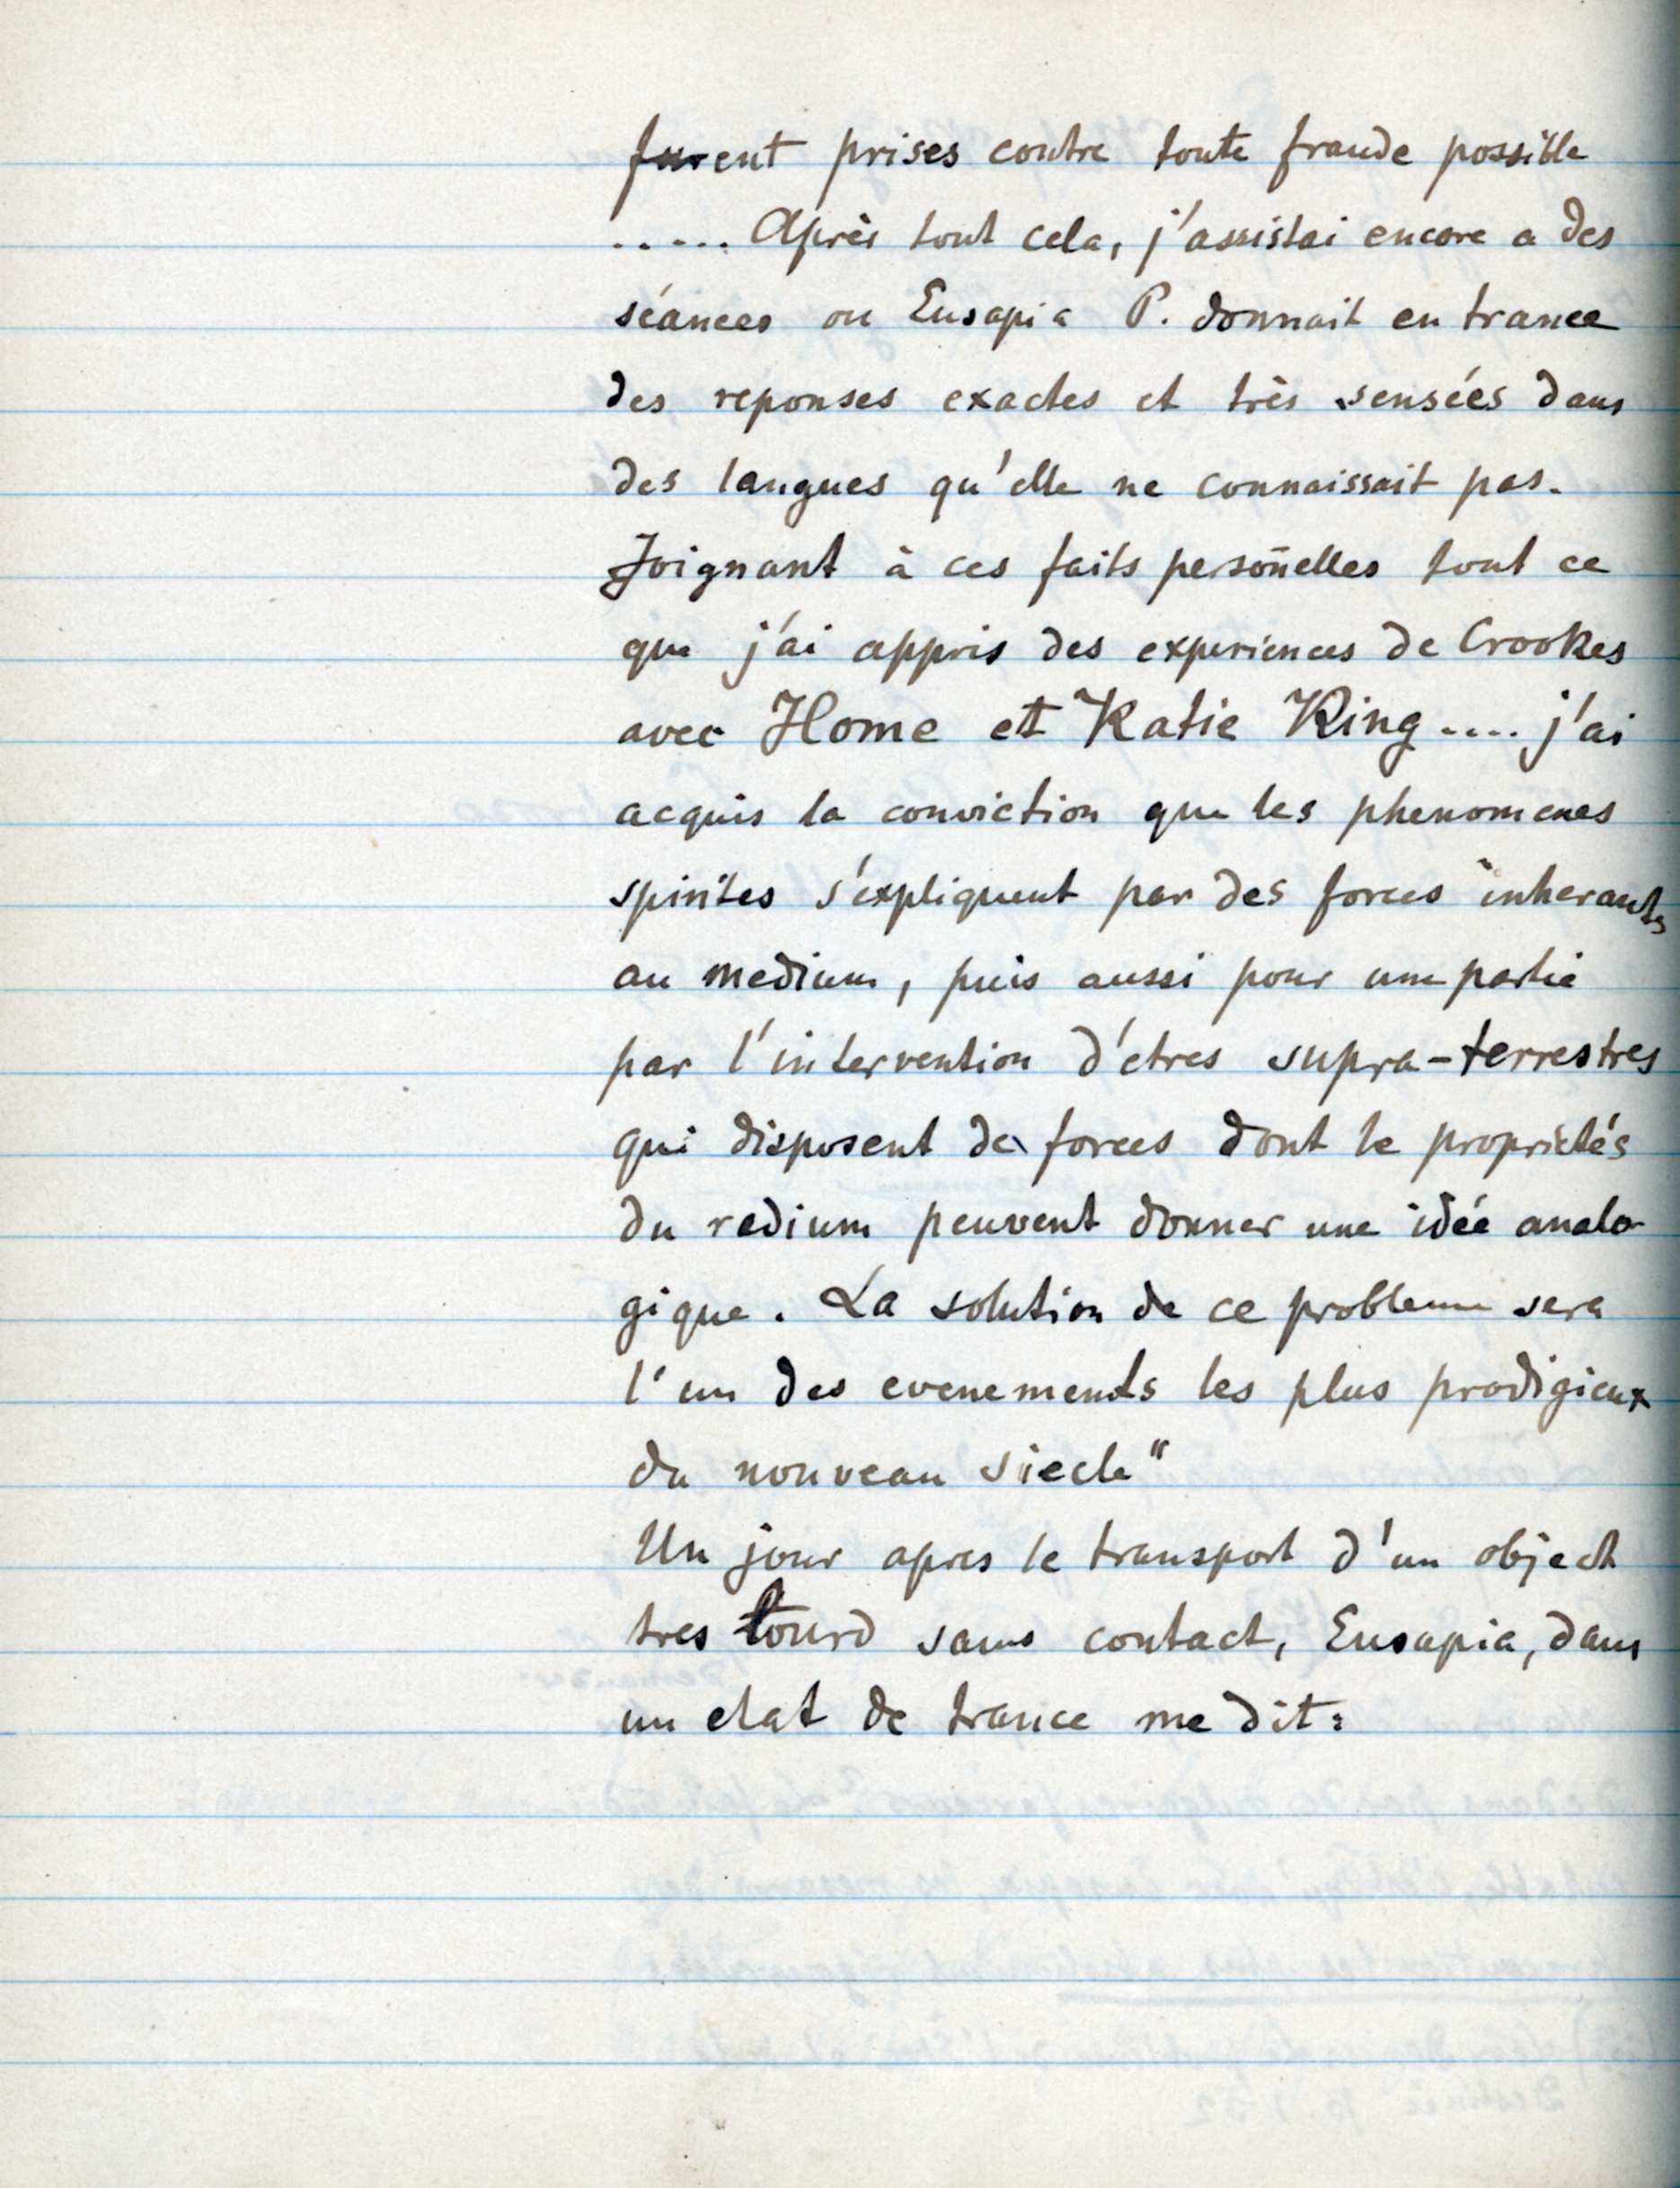 furent prises contre toute fraude possible
..... Après tout cela, j'assistai encore a des
séances ou Eusapia P. donnait en trance
des reponses exactes et très sensées dans
des langues qu'elle ne connaissait pas.
Joignant à ces faits persoñelles tout ce
que j'ai appris des experiences de Crookes
avec Home et Katie King .... j'ai
acquis la conviction que les phenomenes
spirites s'expliquent par des forces inherants
au medium, puis aussi pour une partie
par l'intervention d'etres supra-terrestres
qui disposent de forces dont le propriétés
du radium peuvent donner une idée analo-
gique. La solution de ce probleme sera
l'un des evenements les plus prodigieux
du nouveau siecle"
Un jour apres le transport d'un object
tres lourd sans contact, Eusapia, dans
un etat de trance me dit: